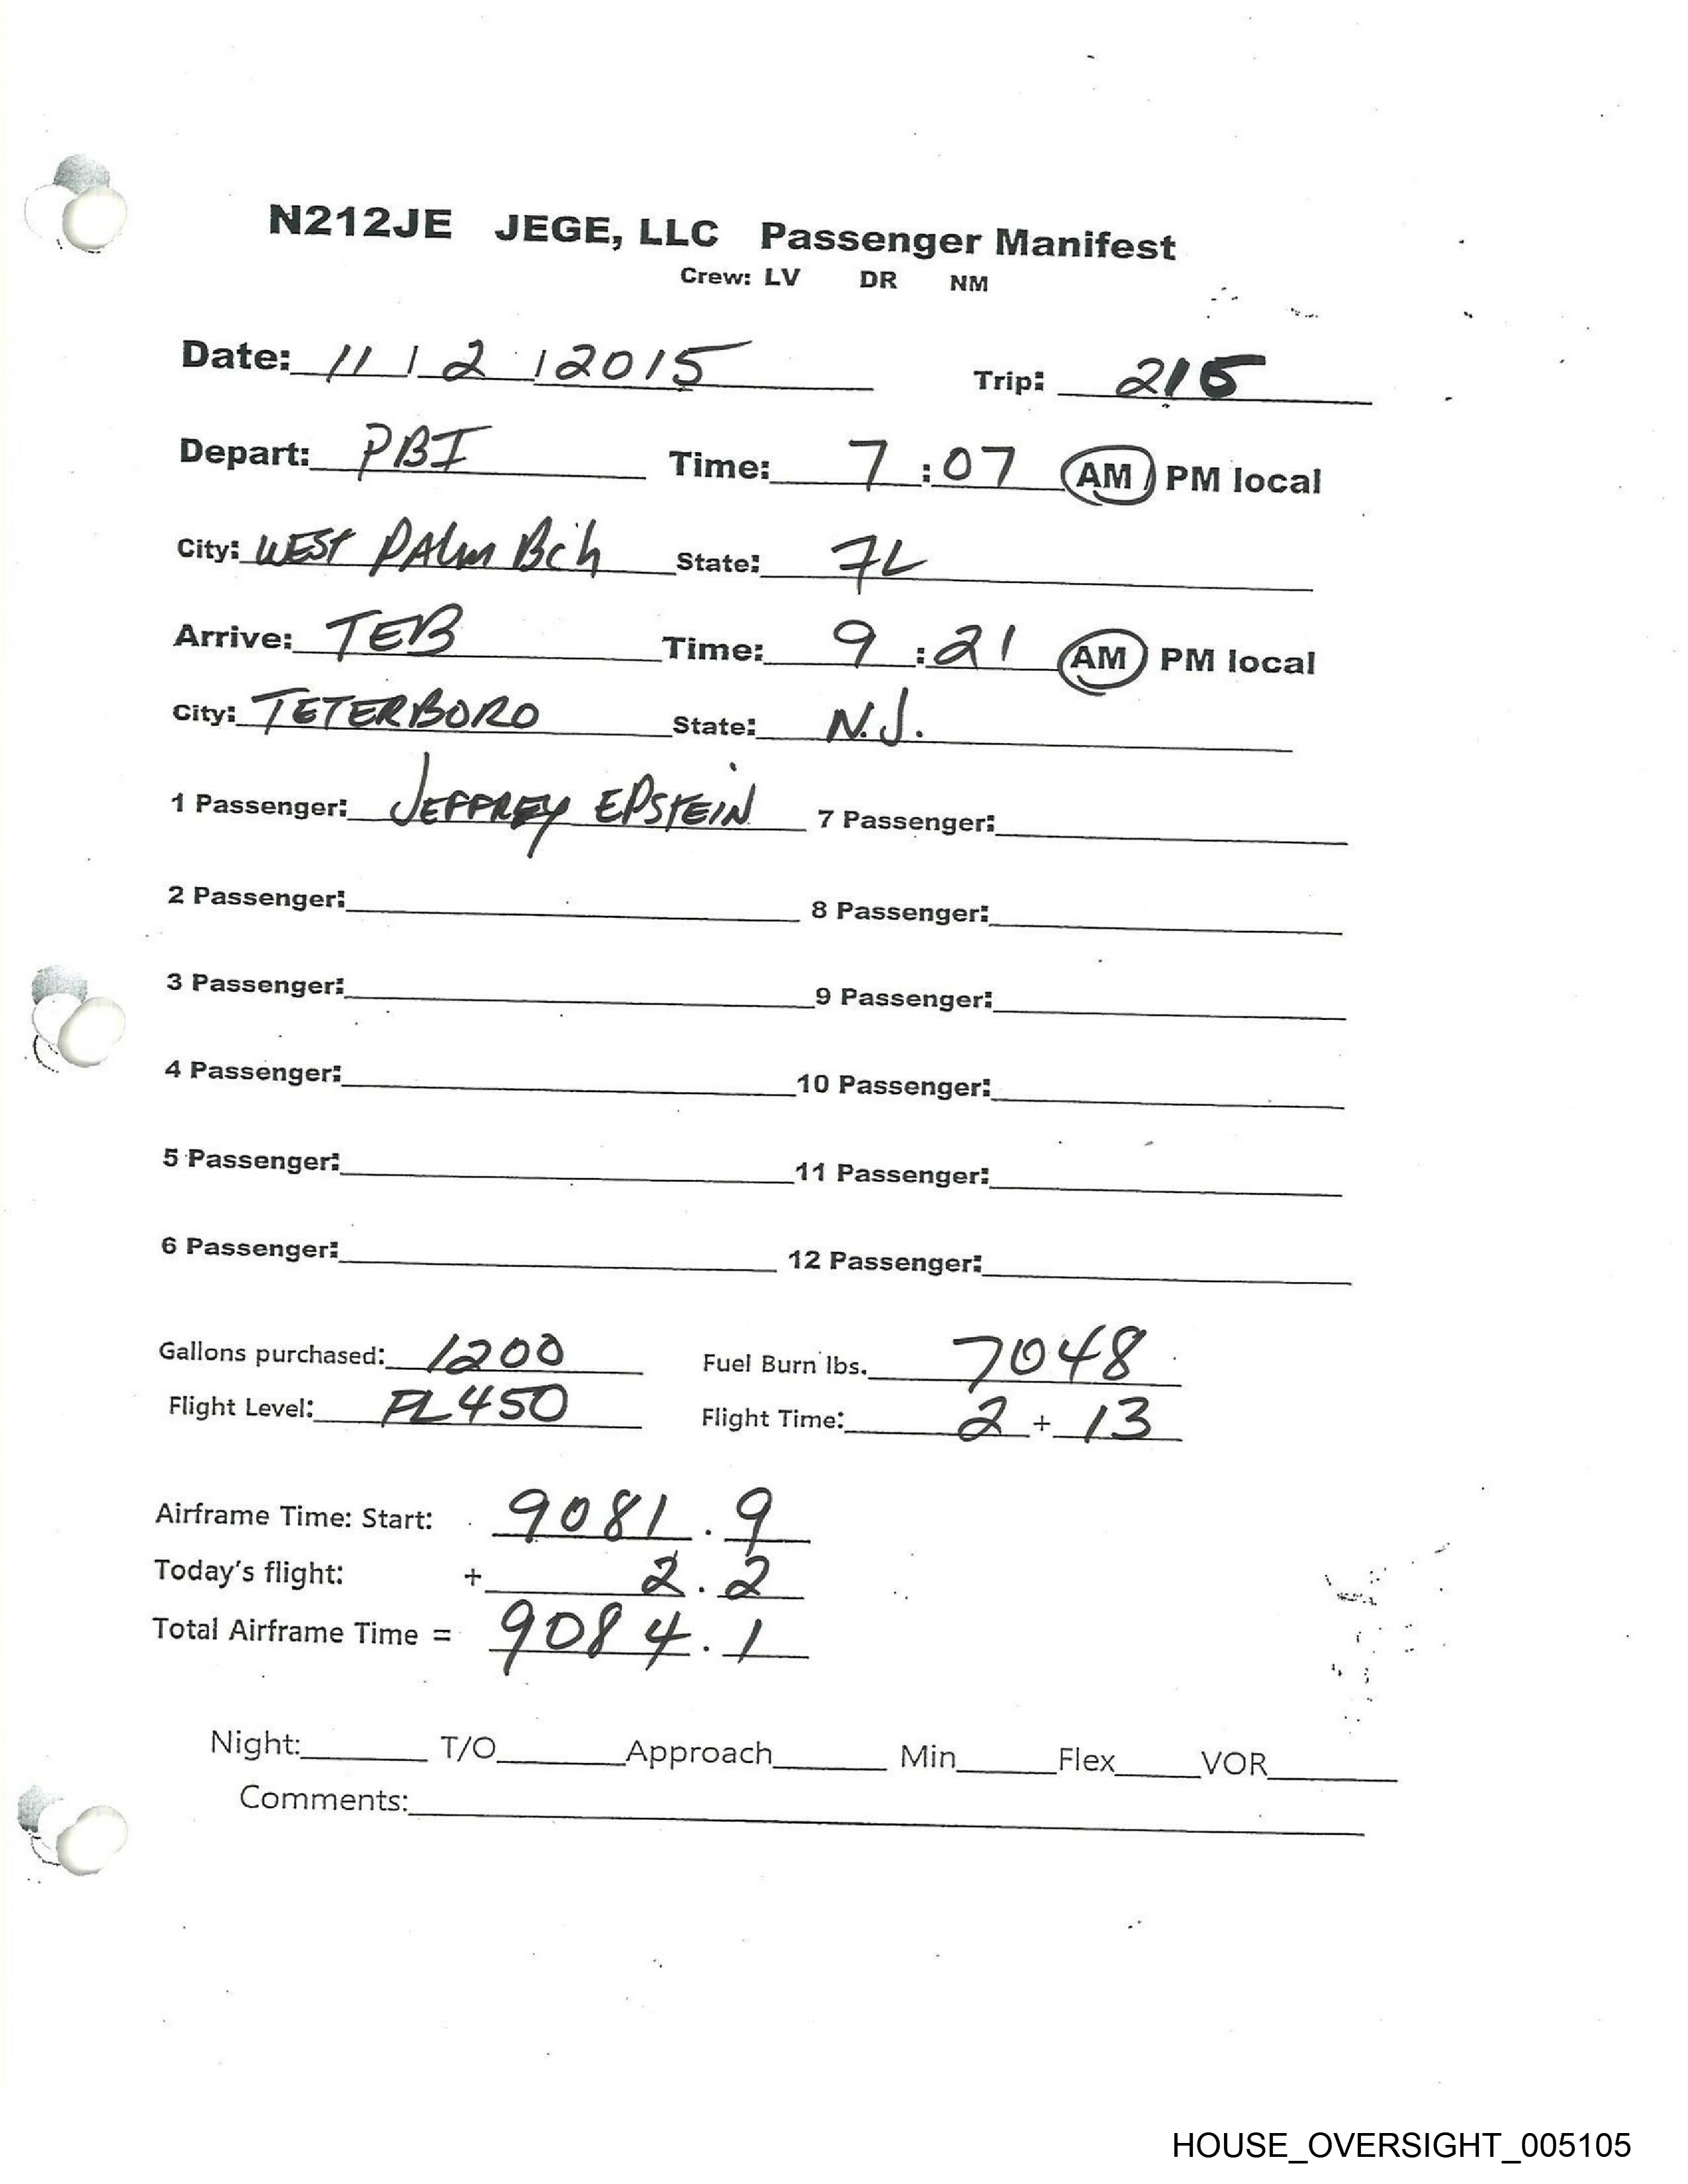 N212JE JEGE, LLC Passenger Manifest
Crew: LV DR NM
Date: 11 / 2 / 2015 Trip: 215
Depart: PBI Time: 7 : 07 AM / PM local
City: WEST PALM Bch State: FL
Arrive: TEB Time: 9 : 21 AM / PM local
City: TETERBORO State: N.J.
1 Passenger: JEFFREY EPSTEIN 7 Passenger:
2 Passenger: 8 Passenger:
3 Passenger: 9 Passenger:
4 Passenger: 10 Passenger:
5 Passenger: 11 Passenger:
6 Passenger: 12 Passenger:
Gallons purchased: 1200 Fuel Burn lbs. 7048
Flight Level: FL450 Flight Time: 2 + 13
Airframe Time: Start: 9081 . 9
Today's flight: + 2 . 2
Total Airframe Time = 9084 . 1
Night: T/O Approach Min Flex VOR
Comments:
HOUSE_OVERSIGHT_005105